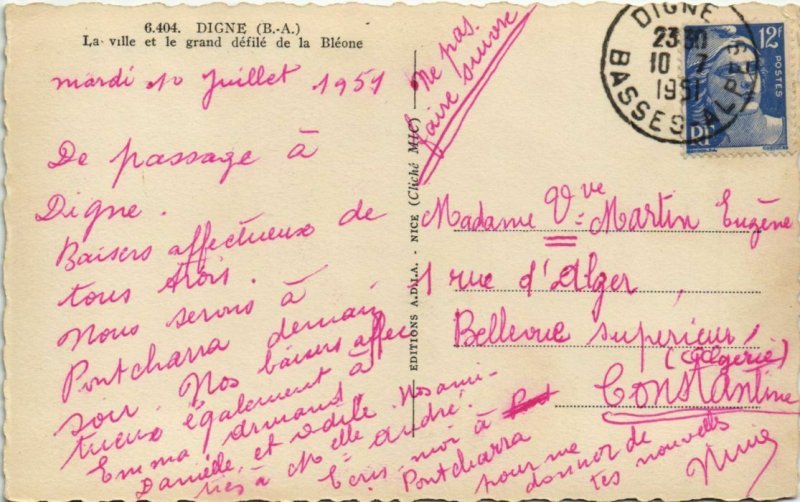 6.404. DIGNE (B.-A.)
La ville et le grand défilé de la Bléone
mardi 10 Juillet 1951
De passage à
Digne.
Baisers affectueux de
tous trois.
Nous serons à
Pontcharra demain
soir. Nos baisers affec
tueux également à
Emma Armand
Danielle et Odile. Nos ami-
tiés à Melle André.
Ecris-moi à
Pontcharra
pour me
donner de
tes nouvelles
EDITIONS A.D.I.A. - NICE (Cliché MIC)
Ne pas
faire suivre
DIGNE
23 30
10 - 7
1951
BASSES-ALPES
12F
POSTES
RF
Madame Vve Martin Eugène
1 rue d'Alger,
Bellevue supérieur,
(Algérie)
Constantine